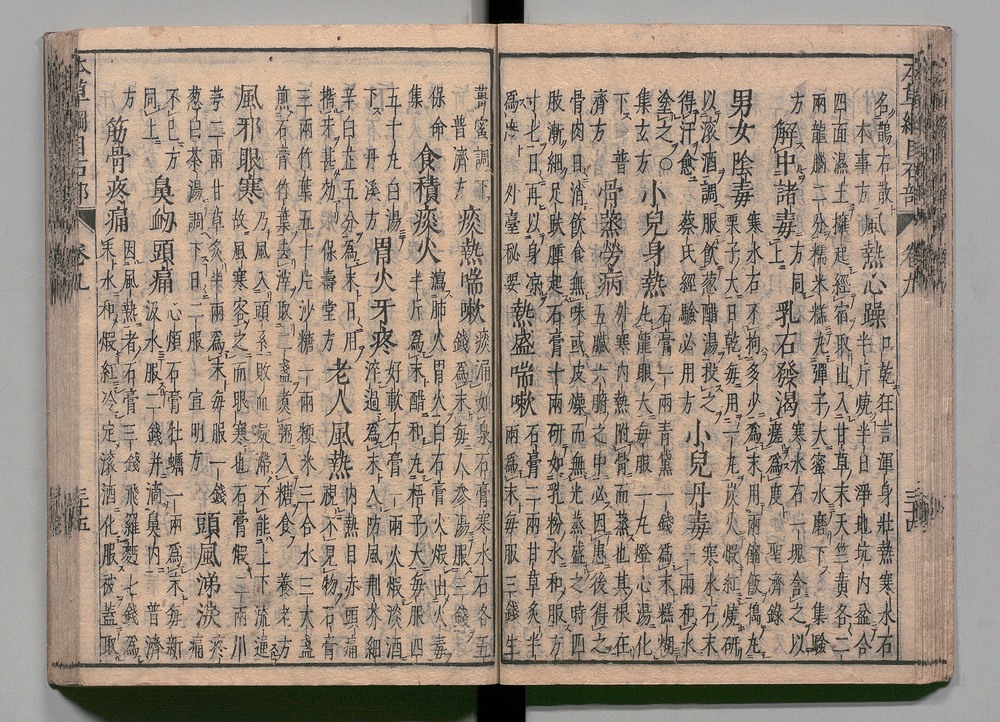 名鵲石散 風熱心躁 口乾狂言渾身壯熱寒水石
本事方 半斤燒半日淨地坑內盆合
四面濕土擁起經宿取出入甘草末天竺黃各二
兩龍腦二分糯米糕丸彈子大蜜水磨下 集驗
方 解中諸毒 同上 乳石發渴 寒水石一塊含之以
瘥爲度 聖濟錄
男女陰毒 寒水石不拘多少爲末用兩餾飯搗丸
栗子大日乾每用一丸炭火煅紅燒研
以滾酒調服飲葱醋湯投之
得汗愈 蔡氏經驗必用方 小兒丹毒 寒水石末一兩和水
塗之 ○ 小兒身熱 石膏一兩青黛一錢爲末糕糊
集玄方 丸龍眼大每服一丸燈心湯化
下 普濟方 骨蒸勞病 外寒內熱附骨而蒸也其根在
五臟六腑之中必因患後得之
骨肉日消飲食無味或皮燥而無光蒸盛之時四
肢漸細足趺腫起石膏十兩研如乳粉水和服方
寸七日再以身凉 熱盛喘嗽 石膏二兩甘草炙半
爲度 外臺秘要 兩爲末每服三錢生
薑蜜調下 痰熱喘嗽 痰涌如泉石膏寒水石各五
普濟方 錢爲末每人參湯服三錢
保命集 食積痰火 瀉肺火胃火白石膏火煅出火毒
半斤爲末醋糊丸梧子大每服四
五十丸白湯下 丹溪方 胃火牙疼 好軟石膏一兩火煅淡酒
淬過爲末入防風荊芥細
辛白芷五分爲末日用
揩牙甚效 保壽堂方 老人風熱 內熱目赤頭痛
視不見物石膏
三兩竹葉五十片沙糖一兩粳米三合水三大盞
煎石膏竹葉去滓取二盞煮粥入糖食 養老方
風邪眼寒 乃風入頭系敗血凝滯不能上下流通
故風寒客之而眼寒也石膏煅二兩川
芎二兩甘草炙半兩爲末每服一錢 頭風涕淚 疼
葱白茶湯調下日二服 宣明方 痛
不已方同上 鼻衄頭痛 心煩石膏牡蠣一兩爲末每新
汲水服二錢并滴鼻內 普濟
方 筋骨疼痛 因風熱者石膏三錢飛羅麪七錢爲
末水和煅紅冷定滾酒化服被蓋取
本草綱目石部 卷九 三十四
本草綱目石部 卷九 三十五